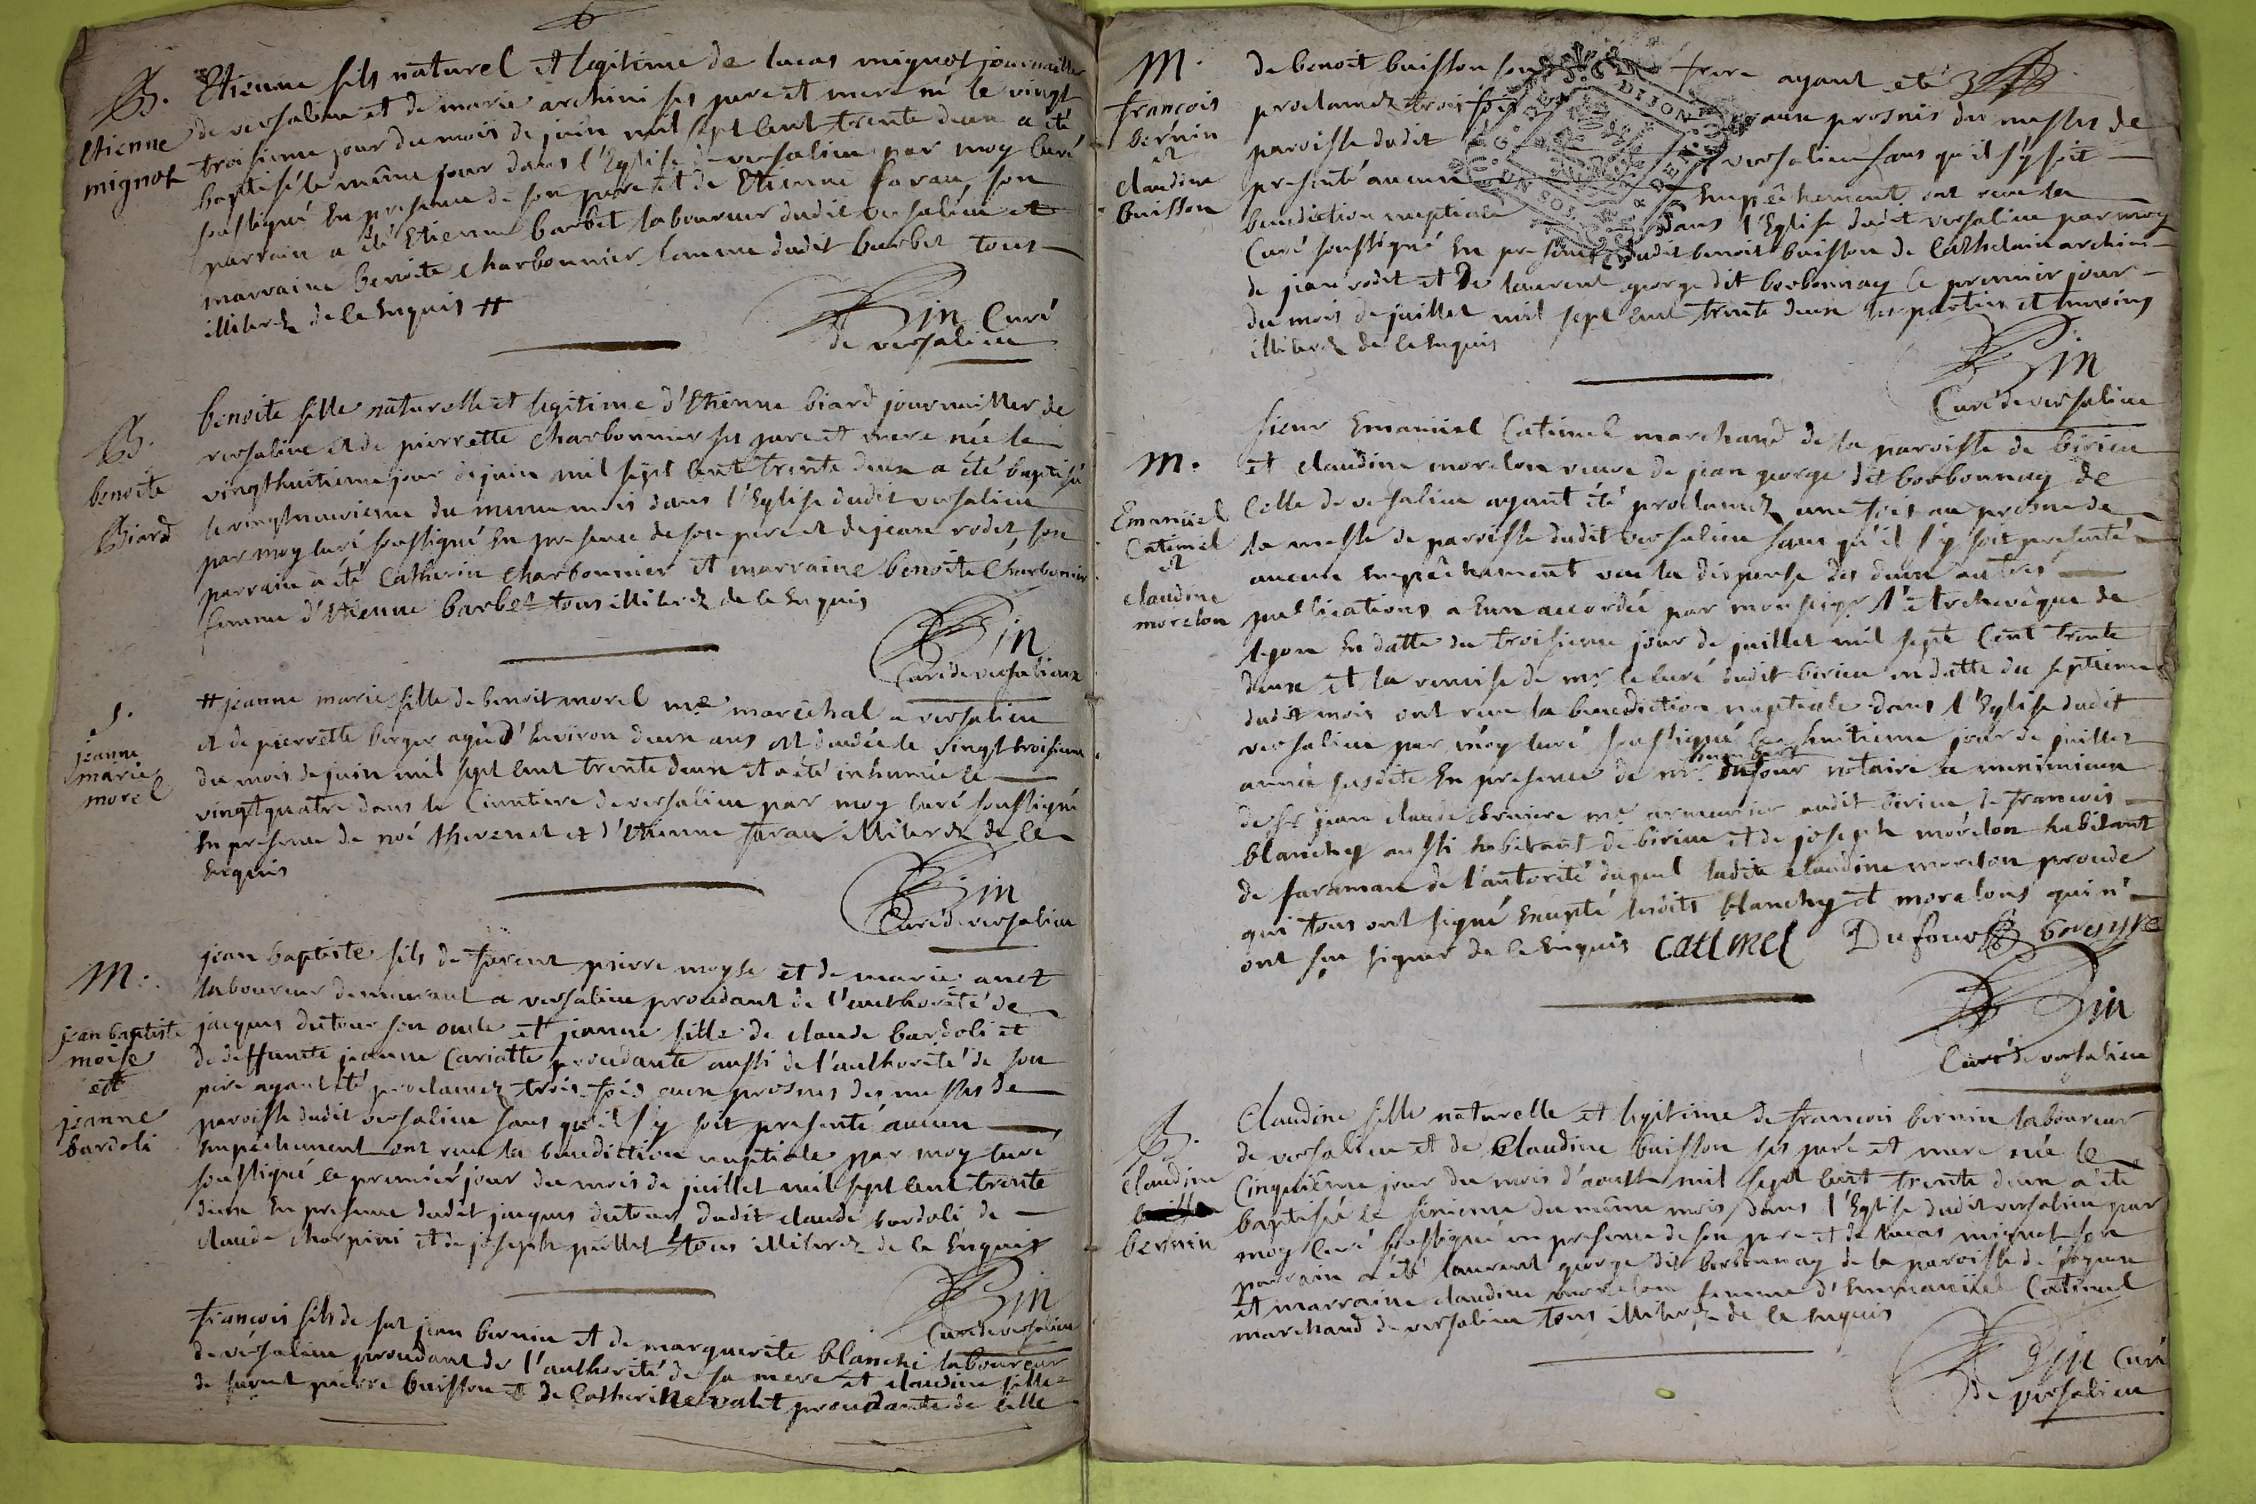 B.
Etienne
mignot
Etienne fils naturel et legitime de lucas mignot journallier
de versalieu et de marie archini ses pere et mere né le vingt
troisieme jour du mois de juin mil sept cent trente deux a été
baptisé le même jour dans l'Eglise de versalieu par moy Curé
soussigné En presence de son pere et de Etienne farau, son
parrain a été Etienne barbet laboureur dudit versalieu et
marraine benoite charbonnier femme dudit barbet tous
illiterez de ce Enquis #
Curé
de versalieu
B.
benoite
Biard
benoite fille naturelle et legitime d'Etienne biard journallier de
versalieu et de pierrette charbonnier ses pere et mere née le
vingthuitieme jour de juin mil sept cent trente deux a été baptisé
le vingtneuvieme du meme mois dans l'Eglise dudit versalieu
par moy curé soussigné En presence de son pere et de jean rodet, son
parrain a été Catherin charbonnier et marraine benoite Charbonnier
femme d'Etienne barbet tous illiterez de ce Enquis
Curé de versalieux
S.
jeanne
marie
morel
# jeanne marie fille de benoit morel me marechal a versalieu
et de pierrette berger agée d'Environ deux ans est decedée le vingt troisieme
du mois de juin mil sept cent trente deux et a été inhumée le
vingtquatre dans le Cimetiere de versalieu par moy Curé soussigné
En presence de noé thevenet et d'Etienne farau illiterez de ce
Enquis
Curé de versalieu
M.
jean baptiste
moise
et
jeanne
bardoli
jean baptiste fils de furent pierre moyse et de marie anet
laboureur demeurant a versalieu procedant de l'authorité de
jacques dutour son oncle et jeanne fille de claude bardoli et
de deffuncte jeanne Cariatte procedante aussi de l'authorité de son
pere ayant été proclamez trois fois aux prosnes des messes de
paroisse dudit versalieu sans qu'il s'y soit presenté aucun
Empêchement ont reçu la benediction nuptiale par moy Curé
soussigné le premier jour du mois de juillet mil sept cent trente
deux En presence dudit jacques dutour, dudit claude bardoli de
claude charpini et de joseph paillet tous illiterez de ce Enquis
Curé de versalieu
françois fils de fut jean bernin et de marguerite blanchi laboureur
de versalieu procedant de l'authorité de sa mere et claudine fille
de furent pierre buisson et de Catherine valet procedante de celle
M.
francois
bernin
et
claudine
buisson
de benoit buisson son frere ayant eté
proclamez trois fois aux prosnes des messes de
paroisse dudit versalieu sans qu'il s'y soit
presenté aucun Empêchement ont reçu la
benediction nuptiale dans l'Eglise dudit versalieu par moy
Curé soussigné En presence dudit benoit buisson de Catherin archini
de jean rodet et De laurent george dit borbonnay le premier jour
du mois de juillet mil sept cent trente deux les parties et temoins
illiterez de ce Enquis
Curé de versalieu
M.
Emaniiel
Catimel
et
claudine
morelon
sieur Emaniiel Catimel marchand de la paroisse de birieu
et claudine morelon veuve de jean george dit borbonnay de
Celle de versalieu ayant été proclamez une fois au prosne de
la messe de paroisse dudit versalieu sans qu'il s'y soit presenté
aucun Empêchement veu la dispense des deux autres
publications a Eux accordée par monseigr l'Archevêque de
lyon En datte du troisieme jour de juillet mil sept Cent trente
deux et la remise de mr le curé dudit birieu en datte du septieme
dudit mois ont reçu la benediction nuptiale dans l'Eglise dudit
versalieu par moy Curé soussigné le huitieme jour de juillet
année susdite En presence de mr dufour notaire a meximieux
de sr jean claude me armurier audit birieu de francois
blanchy aussi habitant de birieu et de joseph morelon habitant
de faraman de l'autorité duquel ladite claudine morelon procede
qui tous ont signé Excepté lesdits blanchy et morelons qui n'
ont su signer de ce Enquis Catimel Dufour
Curé de versalieu
B.
claudine
bernin
Claudine fille naturelle et legitime de francois bernin laboureur
de versalieu et de Claudine buisson ses pere et mere née le
Cinquième jour du mois d'aoust mil sept cent trente deux a été
baptisée le sixieme du même mois dans l'Eglise dudit versalieu par
moy Curé soussigné en presence de son pere et de lucas mignot son
parrain a été laurent george dit borbonnay de la paroisse de
et marraine claudine morelon femme d'Emmaniiel Catimel
marchand de versalieu tous illiterez de ce Enquis
Curé
de versalieu